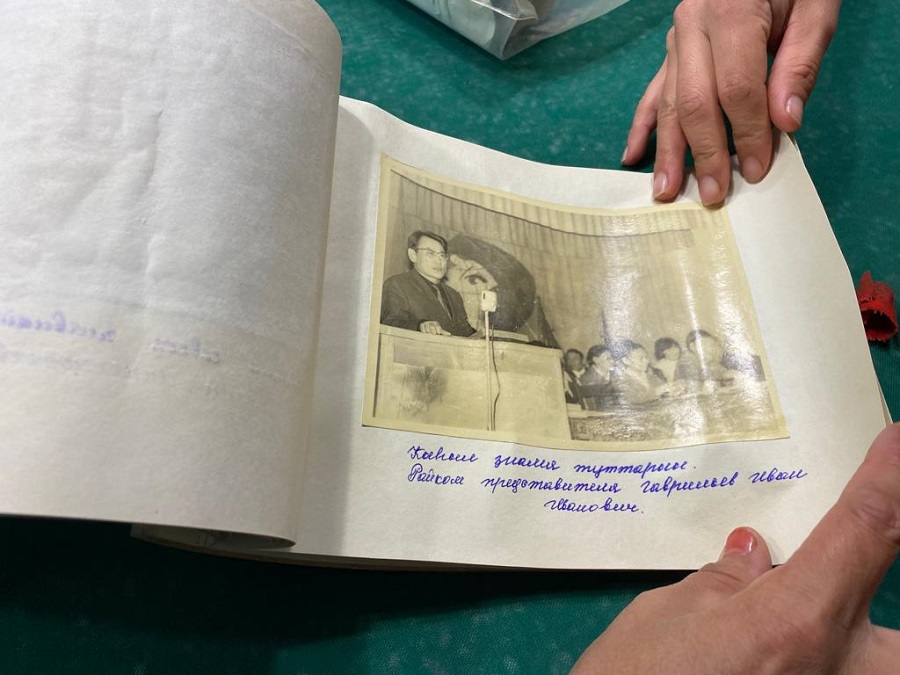 знамя туттарыы.
Райком представителя Гаврильев Иван
Иванович.